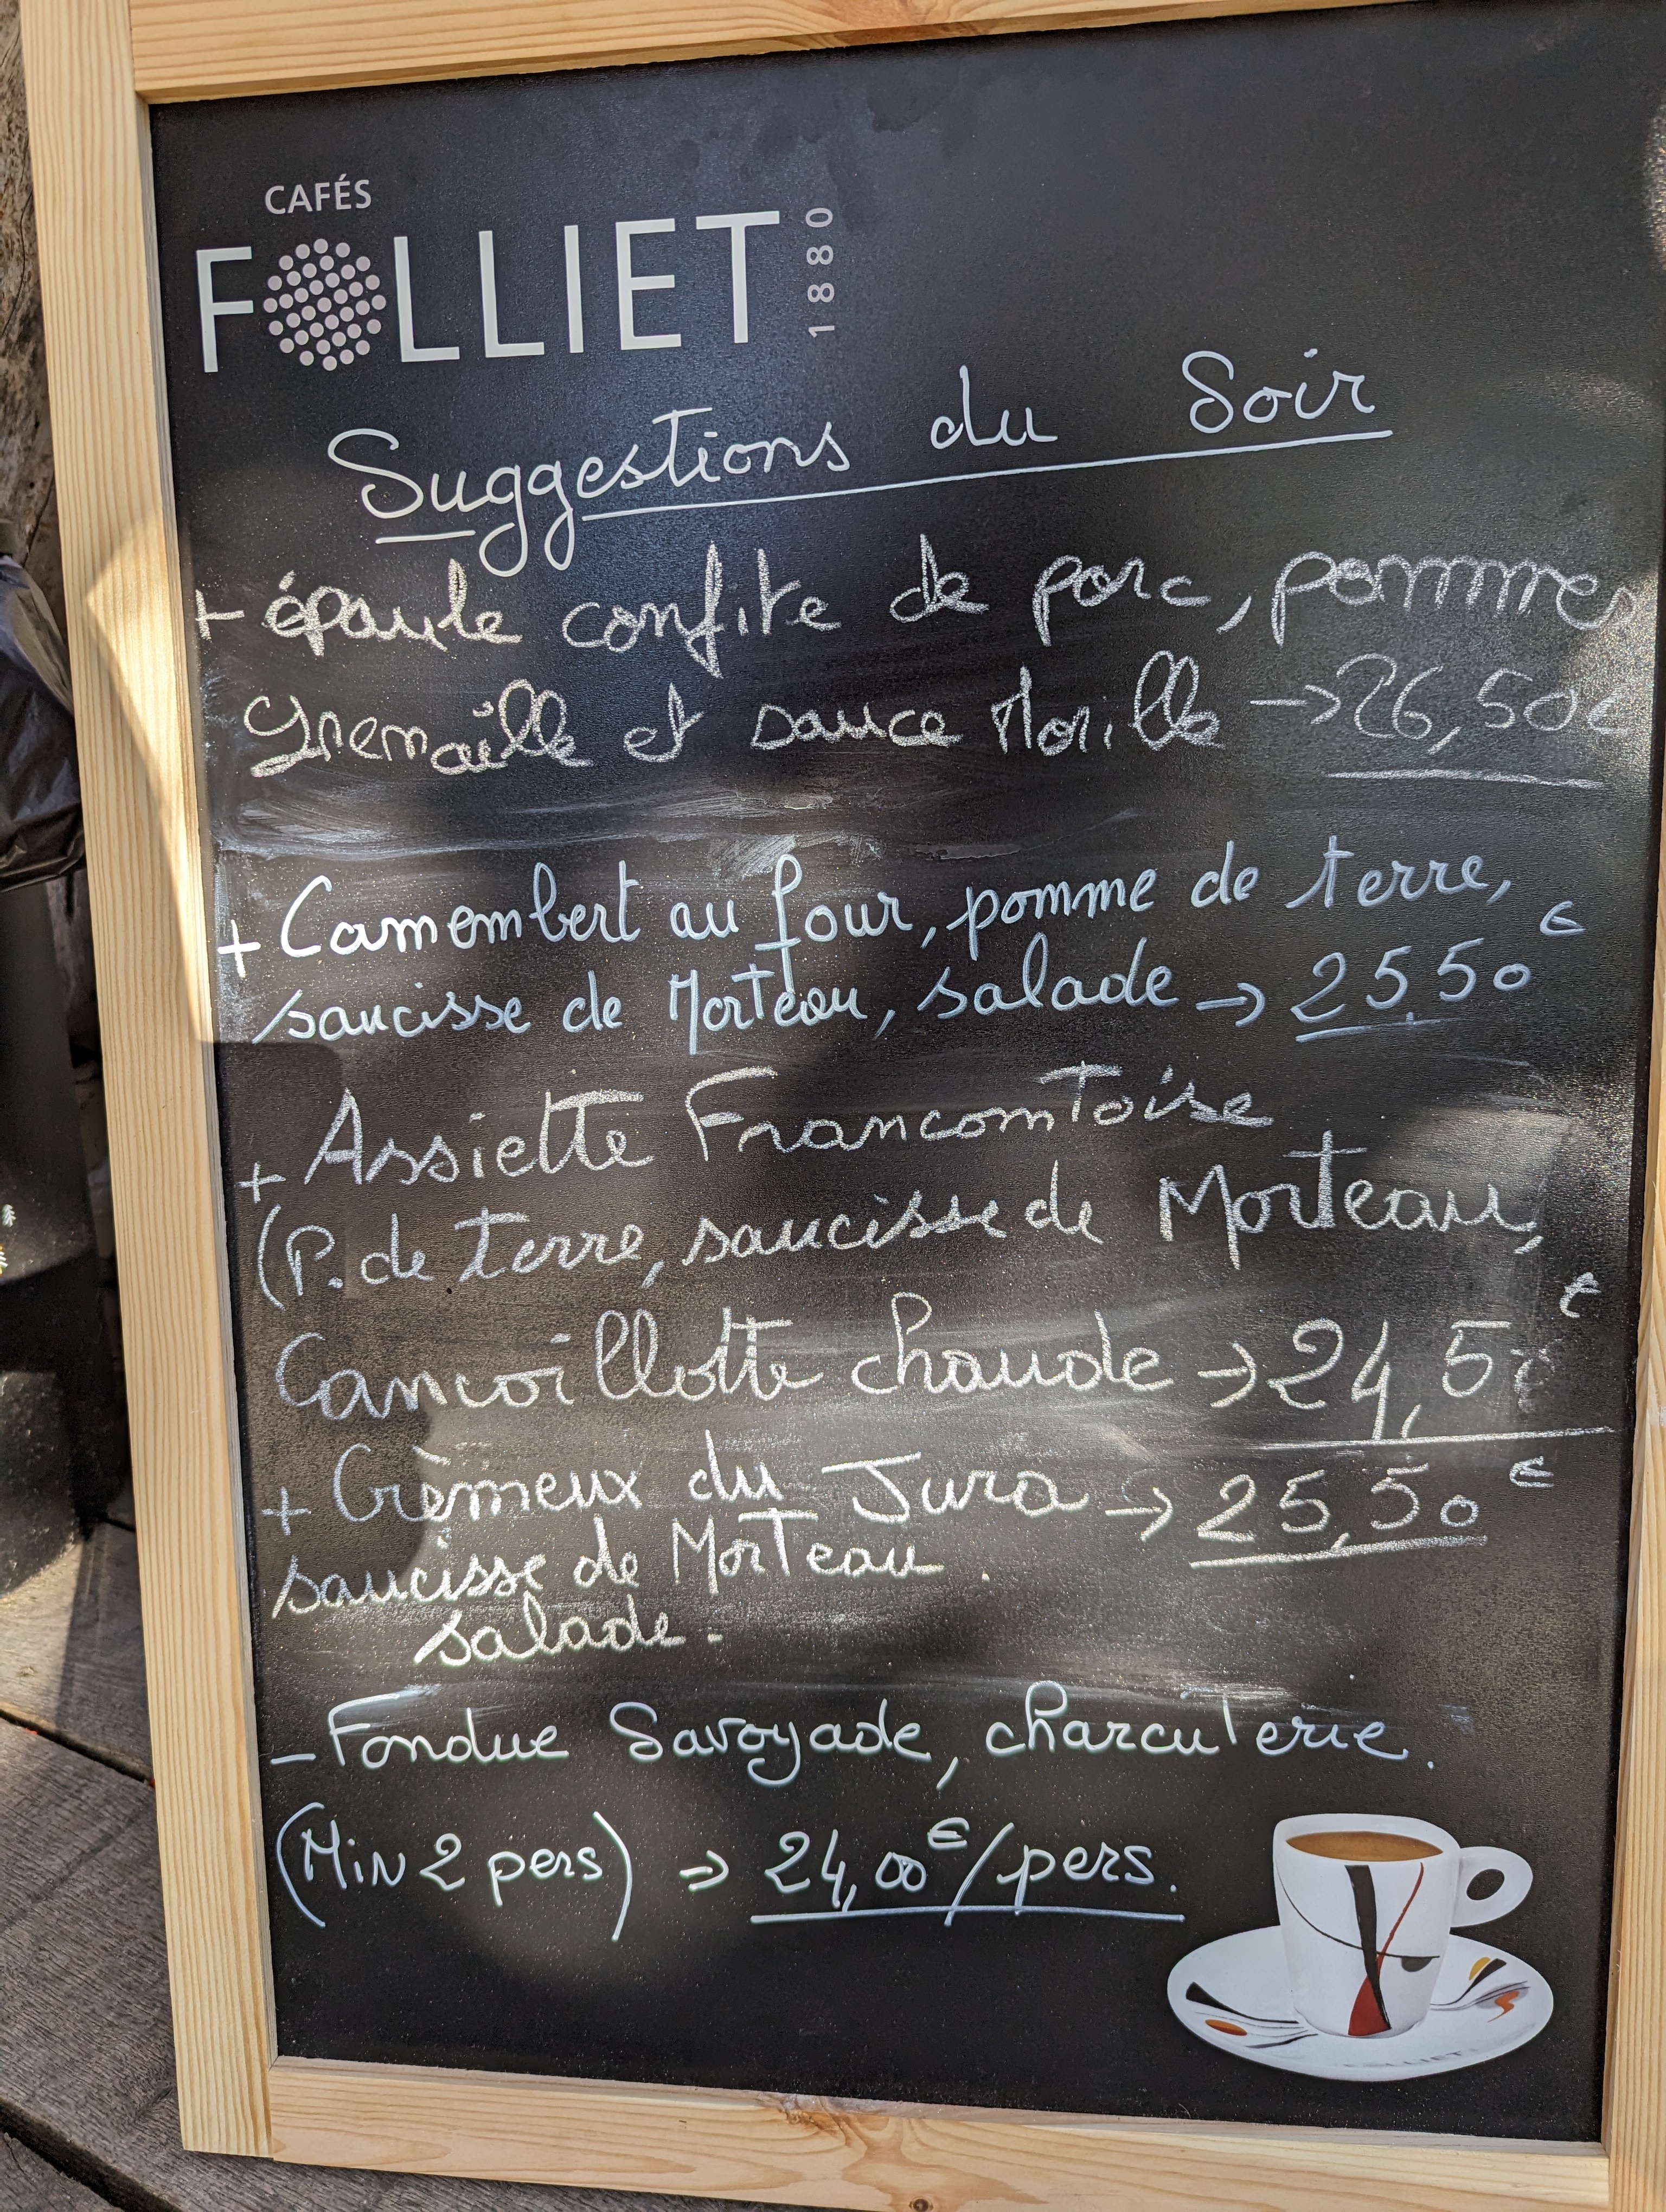 CAFÉS
FOLLIET
1880
Suggestions du Soir
+ épaule confite de porc, pommes
Grenaille et sauce Morille → 26,50€
+ Camembert au four, pomme de terre,
saucisse de Morteau, salade → 25.50 €
+ Assiette Francomtoise
(P. de terre, saucisse de Morteau,
Cancoillotte chaude → 24,50 €
+ Crèmeux du Jura → 25,50 €
saucisse de Morteau
salade.
- Fondue Savoyade, charcuterie.
(Min 2 pers) → 24,00 €/pers.
FOLLIET